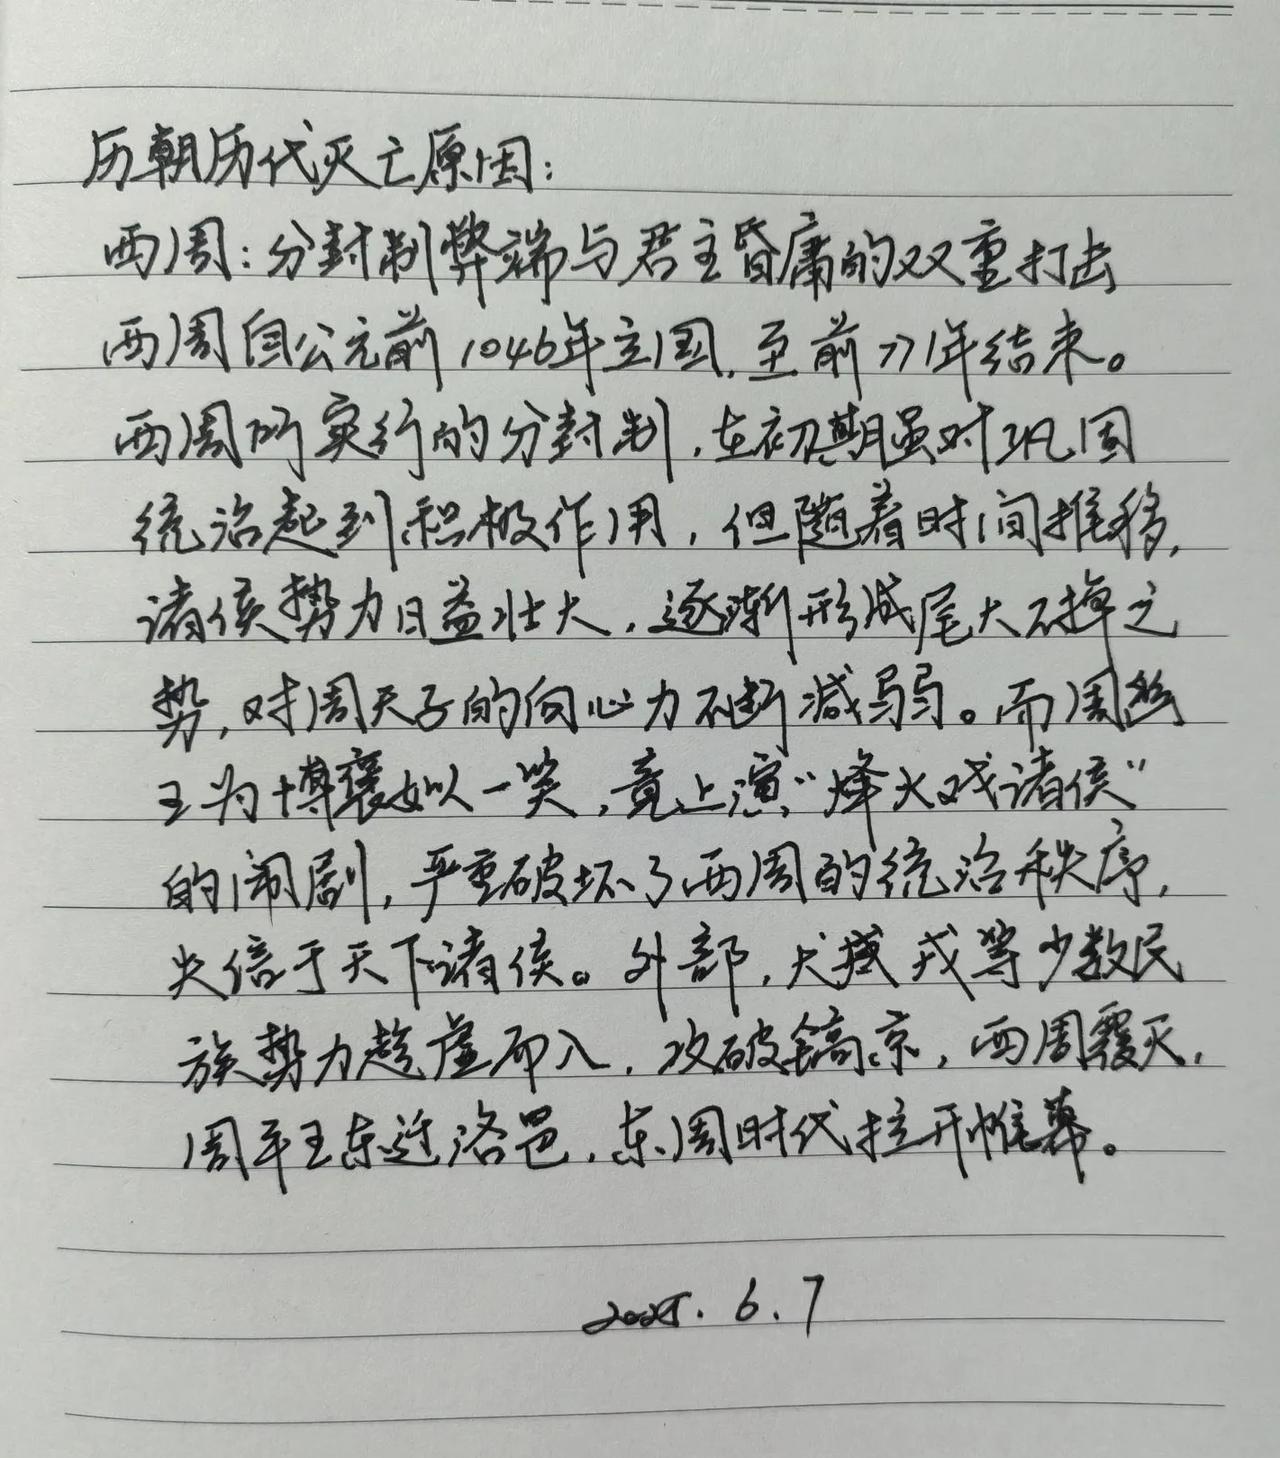 历朝历代灭亡原因：
西周：分封制弊端与君主昏庸的双重打击
西周自公元前1046年立国，至前771年结束。
西周所实行的分封制，在初期虽对巩固
统治起到积极作用，但随着时间推移，
诸侯势力日益壮大，逐渐形成尾大不掉之
势，对周天子的向心力不断减弱。而周幽
王为博褒姒一笑，竟上演“烽火戏诸侯”
的闹剧，严重破坏了西周的统治秩序，
失信于天下诸侯。外部，犬戎等少数民
族势力趁虚而入，攻破镐京，西周覆灭，
周平王东迁洛邑，东周时代拉开帷幕。
2025.6.7